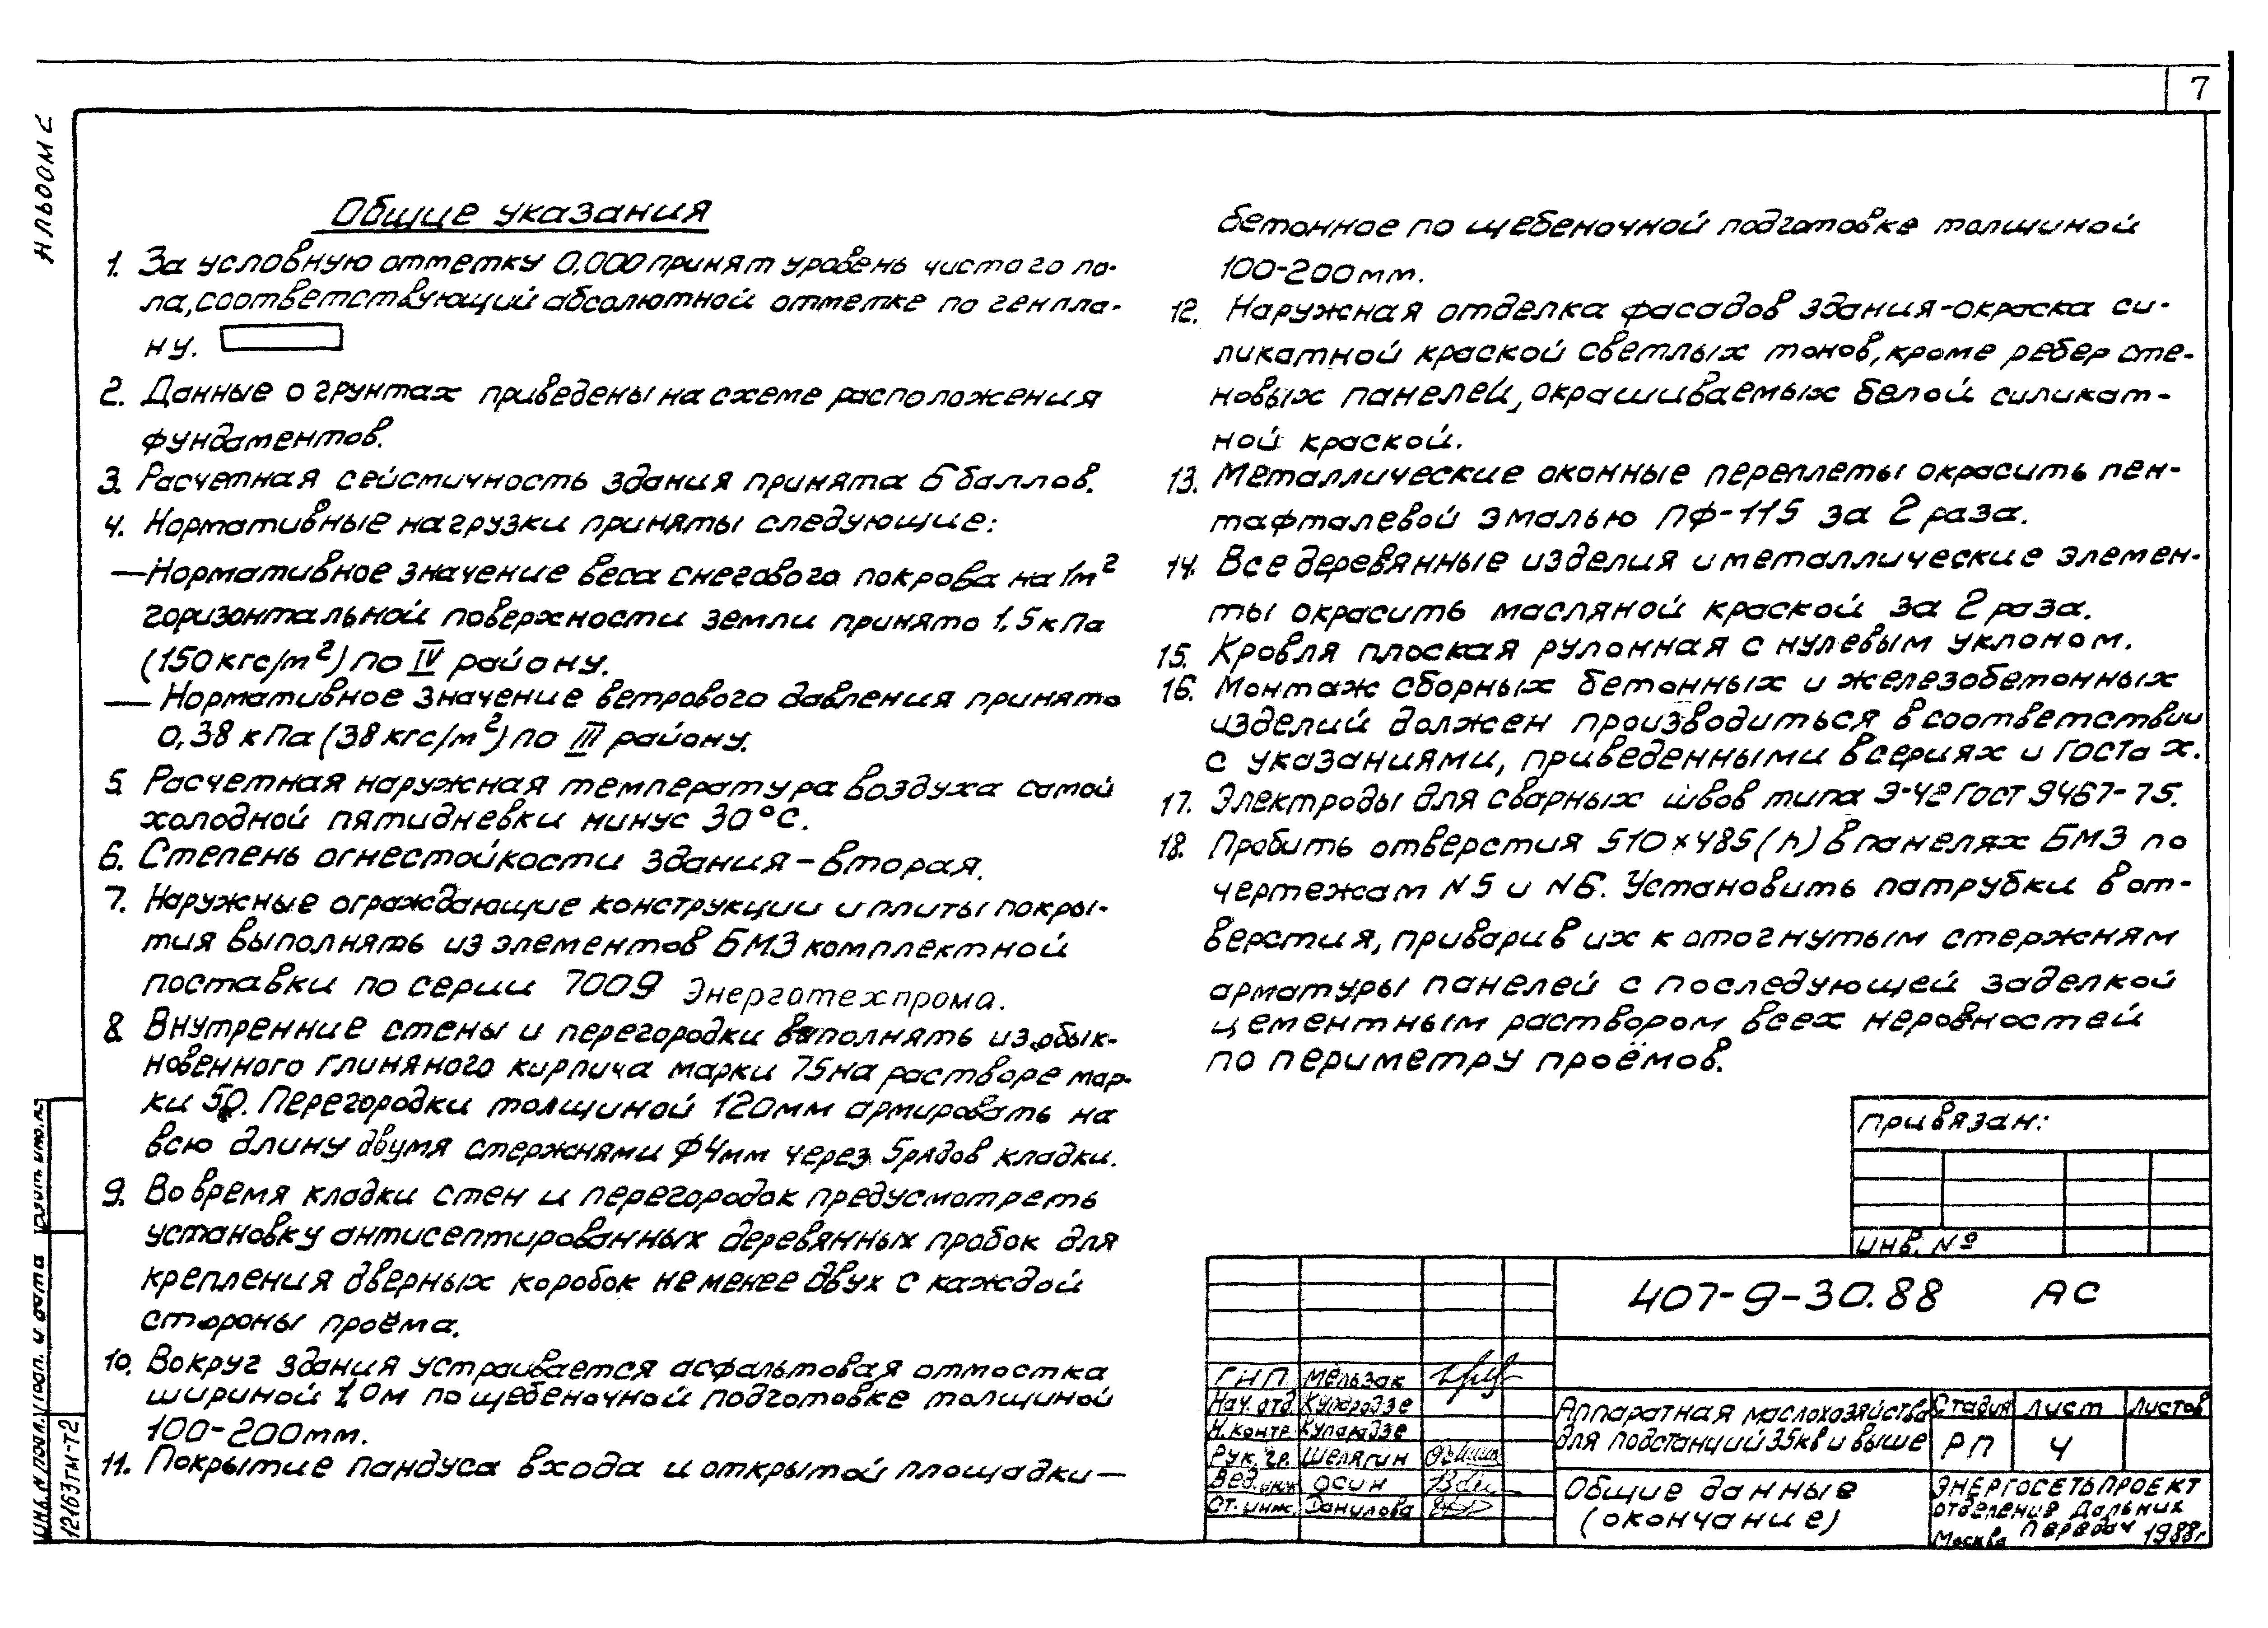 7
Альбом 2
Общие указания
1. За условную отметку 0,000 принят уровень чистого по-
ла, соответствующий абсолютной отметке по генпла-
ну.
2. Данные о грунтах приведены на схеме расположения
фундаментов.
3. Расчетная сейсмичность здания принята 6 баллов.
4. Нормативные нагрузки приняты следующие:
— Нормативное значение веса снегового покрова на 1м²
горизонтальной поверхности земли принято 1,5 кПа
(150 кгс/м²) по IV району.
— Нормативное значение ветрового давления принято
0,38 кПа (38 кгс/м²) по III району.
5. Расчетная наружная температура воздуха самой
холодной пятидневки минус 30°С.
6. Степень огнестойкости здания – вторая.
7. Наружные ограждающие конструкции и плиты покры-
тия выполнять из элементов БМЗ комплектной
поставки по серии 7009 Энерготехпрома.
8. Внутренние стены и перегородки выполнять из обык-
новенного глиняного кирпича марки 75 на растворе мар-
ки 50. Перегородки толщиной 120мм армировать на
всю длину двумя стержнями ф4мм через 5 рядов кладки.
9. Во время кладки стен и перегородок предусмотреть
установку антисептированных деревянных пробок для
крепления дверных коробок не менее двух с каждой
стороны проёма.
10. Вокруг здания устраивается асфальтовая отмостка
шириной 1,0м по щебеночной подготовке толщиной
100-200мм.
11. Покрытие пандуса входа и открытой площадки —
бетонное по щебеночной подготовке толщиной
100-200мм.
12. Наружная отделка фасадов здания-окраска си-
ликатной краской светлых тонов, кроме ребер сте-
новых панелей, окрашиваемых белой силикат-
ной краской.
13. Металлические оконные переплеты окрасить пен-
тафталевой эмалью ПФ-115 за 2 раза.
14. Все деревянные изделия и металлические элемен-
ты окрасить масляной краской за 2 раза.
15. Кровля плоская рулонная с нулевым уклоном.
16. Монтаж сборных бетонных и железобетонных
изделий должен производиться в соответствии
с указаниями, приведенными в сериях и ГОСТах.
17. Электроды для сварных швов типа Э-42 ГОСТ 9467-75.
18. Пробить отверстия 510×485(h) в панелях БМЗ по
чертежам N5 и N6. Установить патрубки в от-
верстия, приварив их к отогнутым стержням
арматуры панелей с последующей заделкой
цементным раствором всех неровностей
по периметру проёмов.
Привязан:
Инв. №
407-9-30.88 АС
ГИП Мельзак
Нач. отд. Купарадзе
Н. контр. Купарадзе
Рук. гр. Шелягин
Вед. инж. Осин
Ст. инж. Данилова
Аппаратная маслохозяйства
для подстанций 35кв и выше
Стадия Лист Листов
РП 4
Общие данные
(окончание)
Энергосетьпроект
отделение Дальних
передач
Москва 1988г.
Инв. N подл. Подп. и дата Взам. инв. N
12163ТМ-Т2